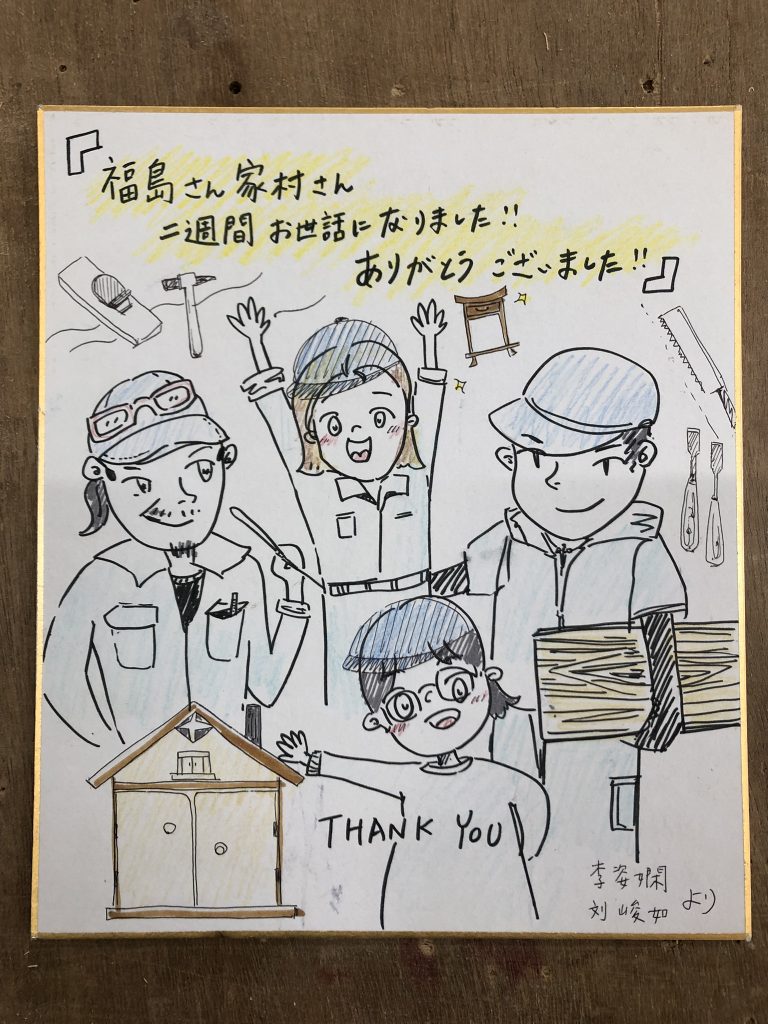 『福島さん家村さん
二週間 お世話になりました!!
ありがとう ございました!!』
THANK YOU
李姿嫻
刘峻如 より